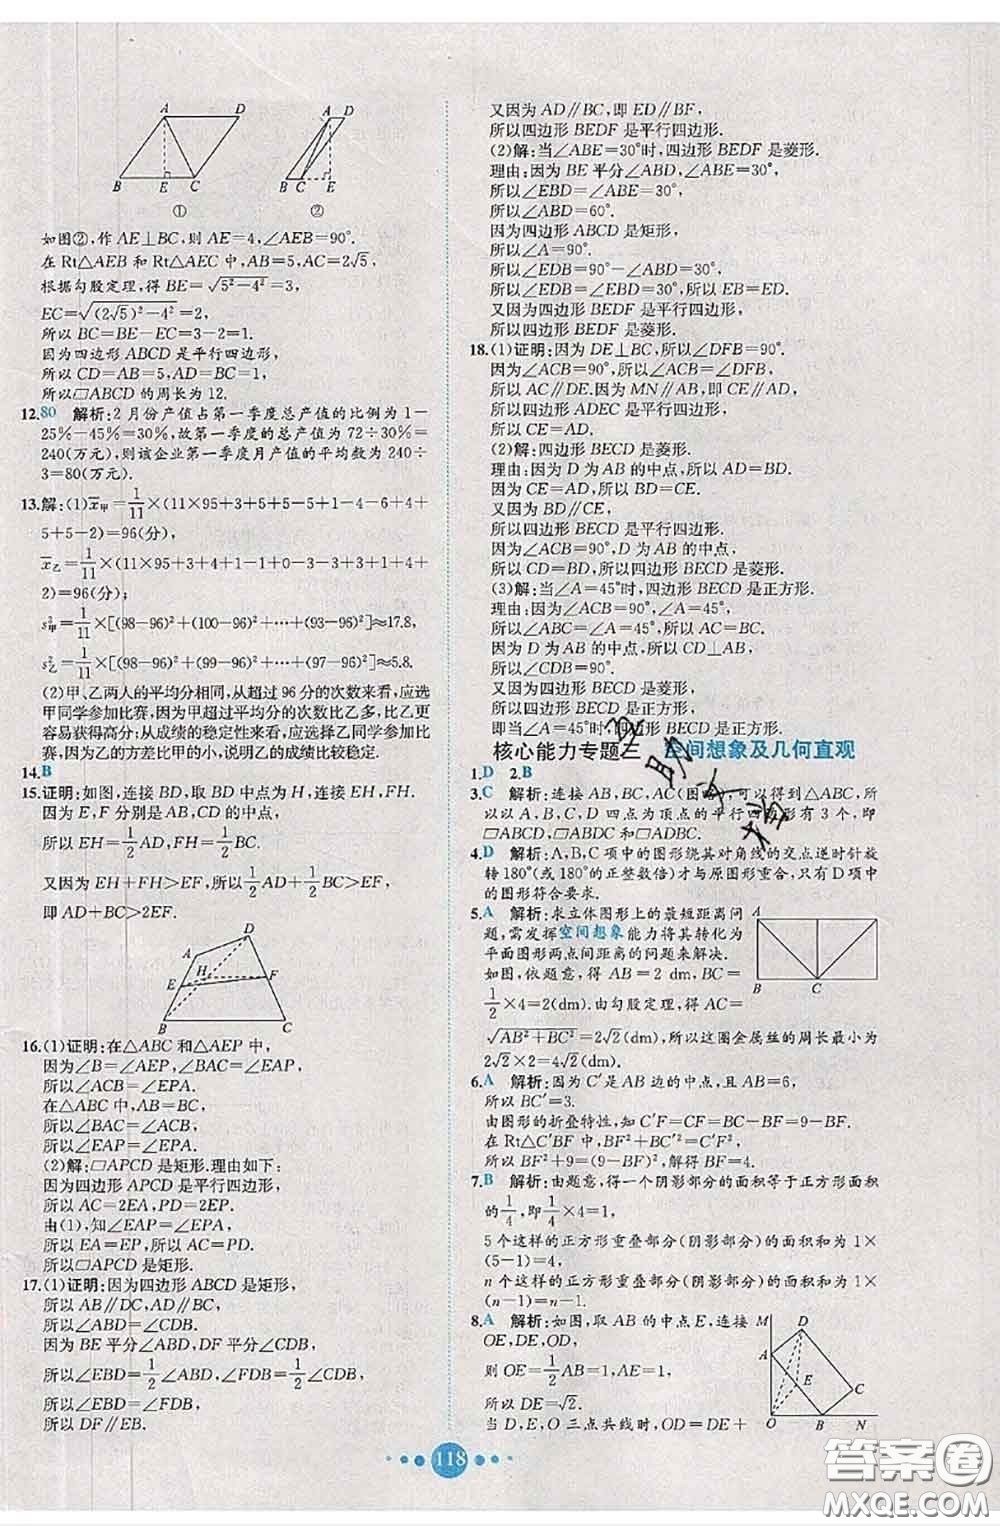 A D
B E C
①
A D
B C E
②
如图②,作 AE⊥BC,则 AE=4,∠AEB=90°.
在 Rt△AEB 和 Rt△AEC 中,AB=5,AC=2√5,
根据勾股定理,得 BE=√(5²-4²)=3,
EC=√((2√5)²-4²)=2,
所以 BC=BE-EC=3-2=1.
因为四边形 ABCD 是平行四边形,
所以 CD=AB=5,AD=BC=1.
所以□ABCD 的周长为 12.
12.80 解析:2 月份产值占第一季度总产值的比例为 1-
25%-45%=30%,故第一季度的总产值为 72÷30%=
240(万元),则该企业第一季度月产值的平均数为 240÷
3=80(万元).
13.解:(1)x̄甲=1/11×(11×95+3+5+5-5+1-4+4+
5+5-2)=96(分),
x̄乙=1/11×(11×95+3+4+1-1+0-3+3+1+4+
2)=96(分);
s²甲=1/11×[(98-96)²+(100-96)²+…+(93-96)²]≈17.8,
s²乙=1/11×[(98-96)²+(99-96)²+…+(97-96)²]≈5.8.
(2)甲、乙两人的平均分相同,从超过 96 分的次数来看,应选
甲同学参加比赛,因为甲超过平均分的次数比乙多,比乙更
容易获得高分;从成绩的稳定性来看,应选乙同学参加比
赛,因为乙的方差比甲的小,说明乙的成绩比较稳定.
14.B
15.证明:如图,连接 BD,取 BD 中点为 H,连接 EH,FH,
因为 E,F 分别是 AB,CD 的中点,
所以 EH=1/2AD,FH=1/2BC,
又因为 EH+FH>EF,所以1/2AD+1/2BC>EF,
即 AD+BC>2EF.
D
A
H F
E
B C
16.(1)证明:在△ABC 和△AEP 中,
因为∠B=∠AEP,∠BAC=∠EAP,
所以∠ACB=∠EPA.
在△ABC 中,AB=BC,
所以∠BAC=∠ACB,
所以∠EAP=∠EPA.
(2)解:□APCD 是矩形.理由如下:
因为四边形 APCD 是平行四边形,
所以 AC=2EA,PD=2EP.
由(1),知∠EAP=∠EPA,
所以 EA=EP,所以 AC=PD.
所以□APCD 是矩形.
17.(1)证明:因为四边形 ABCD 是矩形,
所以 AB∥DC,AD∥BC,
所以∠ABD=∠CDB.
因为 BE 平分∠ABD,DF 平分∠CDB,
所以∠EBD=1/2∠ABD,∠FDB=1/2∠CDB,
所以∠EBD=∠FDB,
所以 DF∥EB.
又因为 AD∥BC,即 ED∥BF,
所以四边形 BEDF 是平行四边形.
(2)解:当∠ABE=30°时,四边形 BEDF 是菱形.
理由:因为 BE 平分∠ABD,∠ABE=30°,
所以∠EBD=∠ABE=30°,
所以∠ABD=60°.
因为四边形 ABCD 是矩形,
所以∠A=90°.
所以∠EDB=90°-∠ABD=30°.
所以∠EDB=∠EBD=30°,所以 EB=ED.
又因为四边形 BEDF 是平行四边形,
所以四边形 BEDF 是菱形.
18.(1)证明:因为 DE⊥BC,所以∠DFB=90°.
因为∠ACB=90°,所以∠ACB=∠DFB,
所以 AC∥DE.因为 MN∥AB,即 CE∥AD,
所以四边形 ADEC 是平行四边形,
所以 CE=AD.
(2)解:四边形 BECD 是菱形.
理由:因为 D 为 AB 的中点,所以 AD=BD.
因为 CE=AD,所以 BD=CE.
又因为 BD∥CE,
所以四边形 BECD 是平行四边形.
因为∠ACB=90°,D 为 AB 的中点,
所以 CD=BD,所以四边形 BECD 是菱形.
(3)解:当∠A=45°时,四边形 BECD 是正方形.
理由:因为∠ACB=90°,∠A=45°,
所以∠ABC=∠A=45°,所以 AC=BC.
因为 D 为 AB 的中点,所以 CD⊥AB,
所以∠CDB=90°.
又因为四边形 BECD 是菱形,
所以四边形 BECD 是正方形,
即当∠A=45°时,四边形 BECD 是正方形.
核心能力专题二 空间想象及几何直观
1.D 2.B
3.C 解析:连接 AB,BC,AC(图略),可以得到△ABC,所
以以 A,B,C,D 四点为顶点的平行四边形有 3 个,即
□ABCD,□ABDC 和□ADBC.
4.D 解析:A,B,C 项中的图形绕其对角线的交点逆时针旋
转 180°(或 180°的正整数倍)才与原图形重合,只有 D 项中
的图形符合要求.
5.A 解析:求立体图形上的最短距离问
题,需发挥空间想象能力将其转化为
平面图形两点间距离的问题来解决.
如图,依题意,得 AB=2 dm,BC=
1/2×4=2(dm).由勾股定理,得 AC=
√(AB²+BC²)=2√2(dm),所以这圈金属丝的周长最小为
2√2×2=4√2(dm).
A
B C
6.A 解析:因为 C′是 AB 边的中点,且 AB=6,
所以 BC′=3.
由图形的折叠特性,知 C′F=CF=BC-BF=9-BF.
在 Rt△C′BF 中,BF²+BC′²=C′F²,
所以 BF²+9=(9-BF)²,解得 BF=4.
7.B 解析:由题意,得一个阴影部分的面积等于正方形面积
的1/4,即1/4×4=1,
5 个这样的正方形重叠部分(阴影部分)的面积和为 1×
(5-1)=4,
n 个这样的正方形重叠部分(阴影部分)的面积和为 1×
(n-1)=n-1.
8.A 解析:如图,取 AB 的中点 E,连接
OE,DE,OD,
则 OE=1/2AB=1,
所以 DE=√2.
当 D,E,O 三点共线时,OD=DE+
M
D
A
E
C
O B N
118
答案圈
MXQE.COM